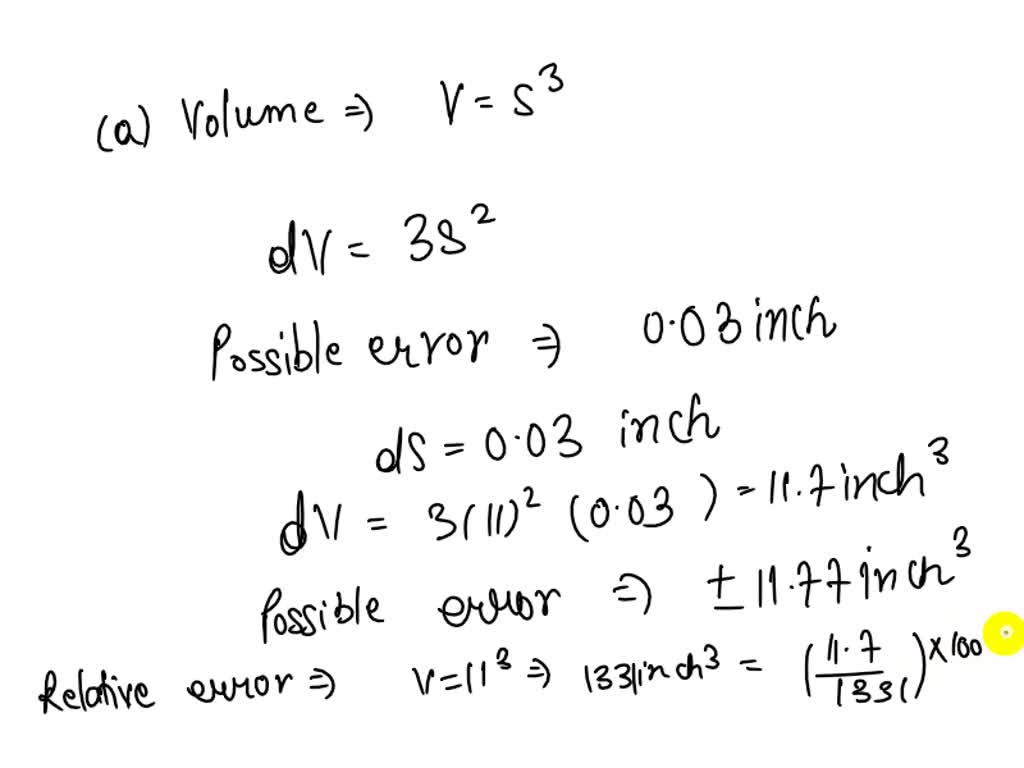 (a) Volume ⇒ V = s³
dV = 3s²
Possible error ⇒ 0.03 inch
ds = 0.03 inch
dV = 3(11)² (0.03) = 11.7 inch³
Possible error ⇒ ± 11.77 inch³
Relative error ⇒ V = 11³ ⇒ 1331 inch³ = (11.7/1331) × 100